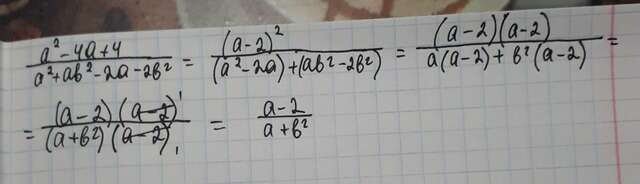 (a² - 4a + 4)/(a² + ab² - 2a - 2b²) = (a-2)²/((a² - 2a) + (ab² - 2b²)) = (a-2)(a-2)/(a(a-2) + b²(a-2)) =
= (a-2)(a-2)¹/(a+b²)(a-2)₁ = (a-2)/(a+b²)